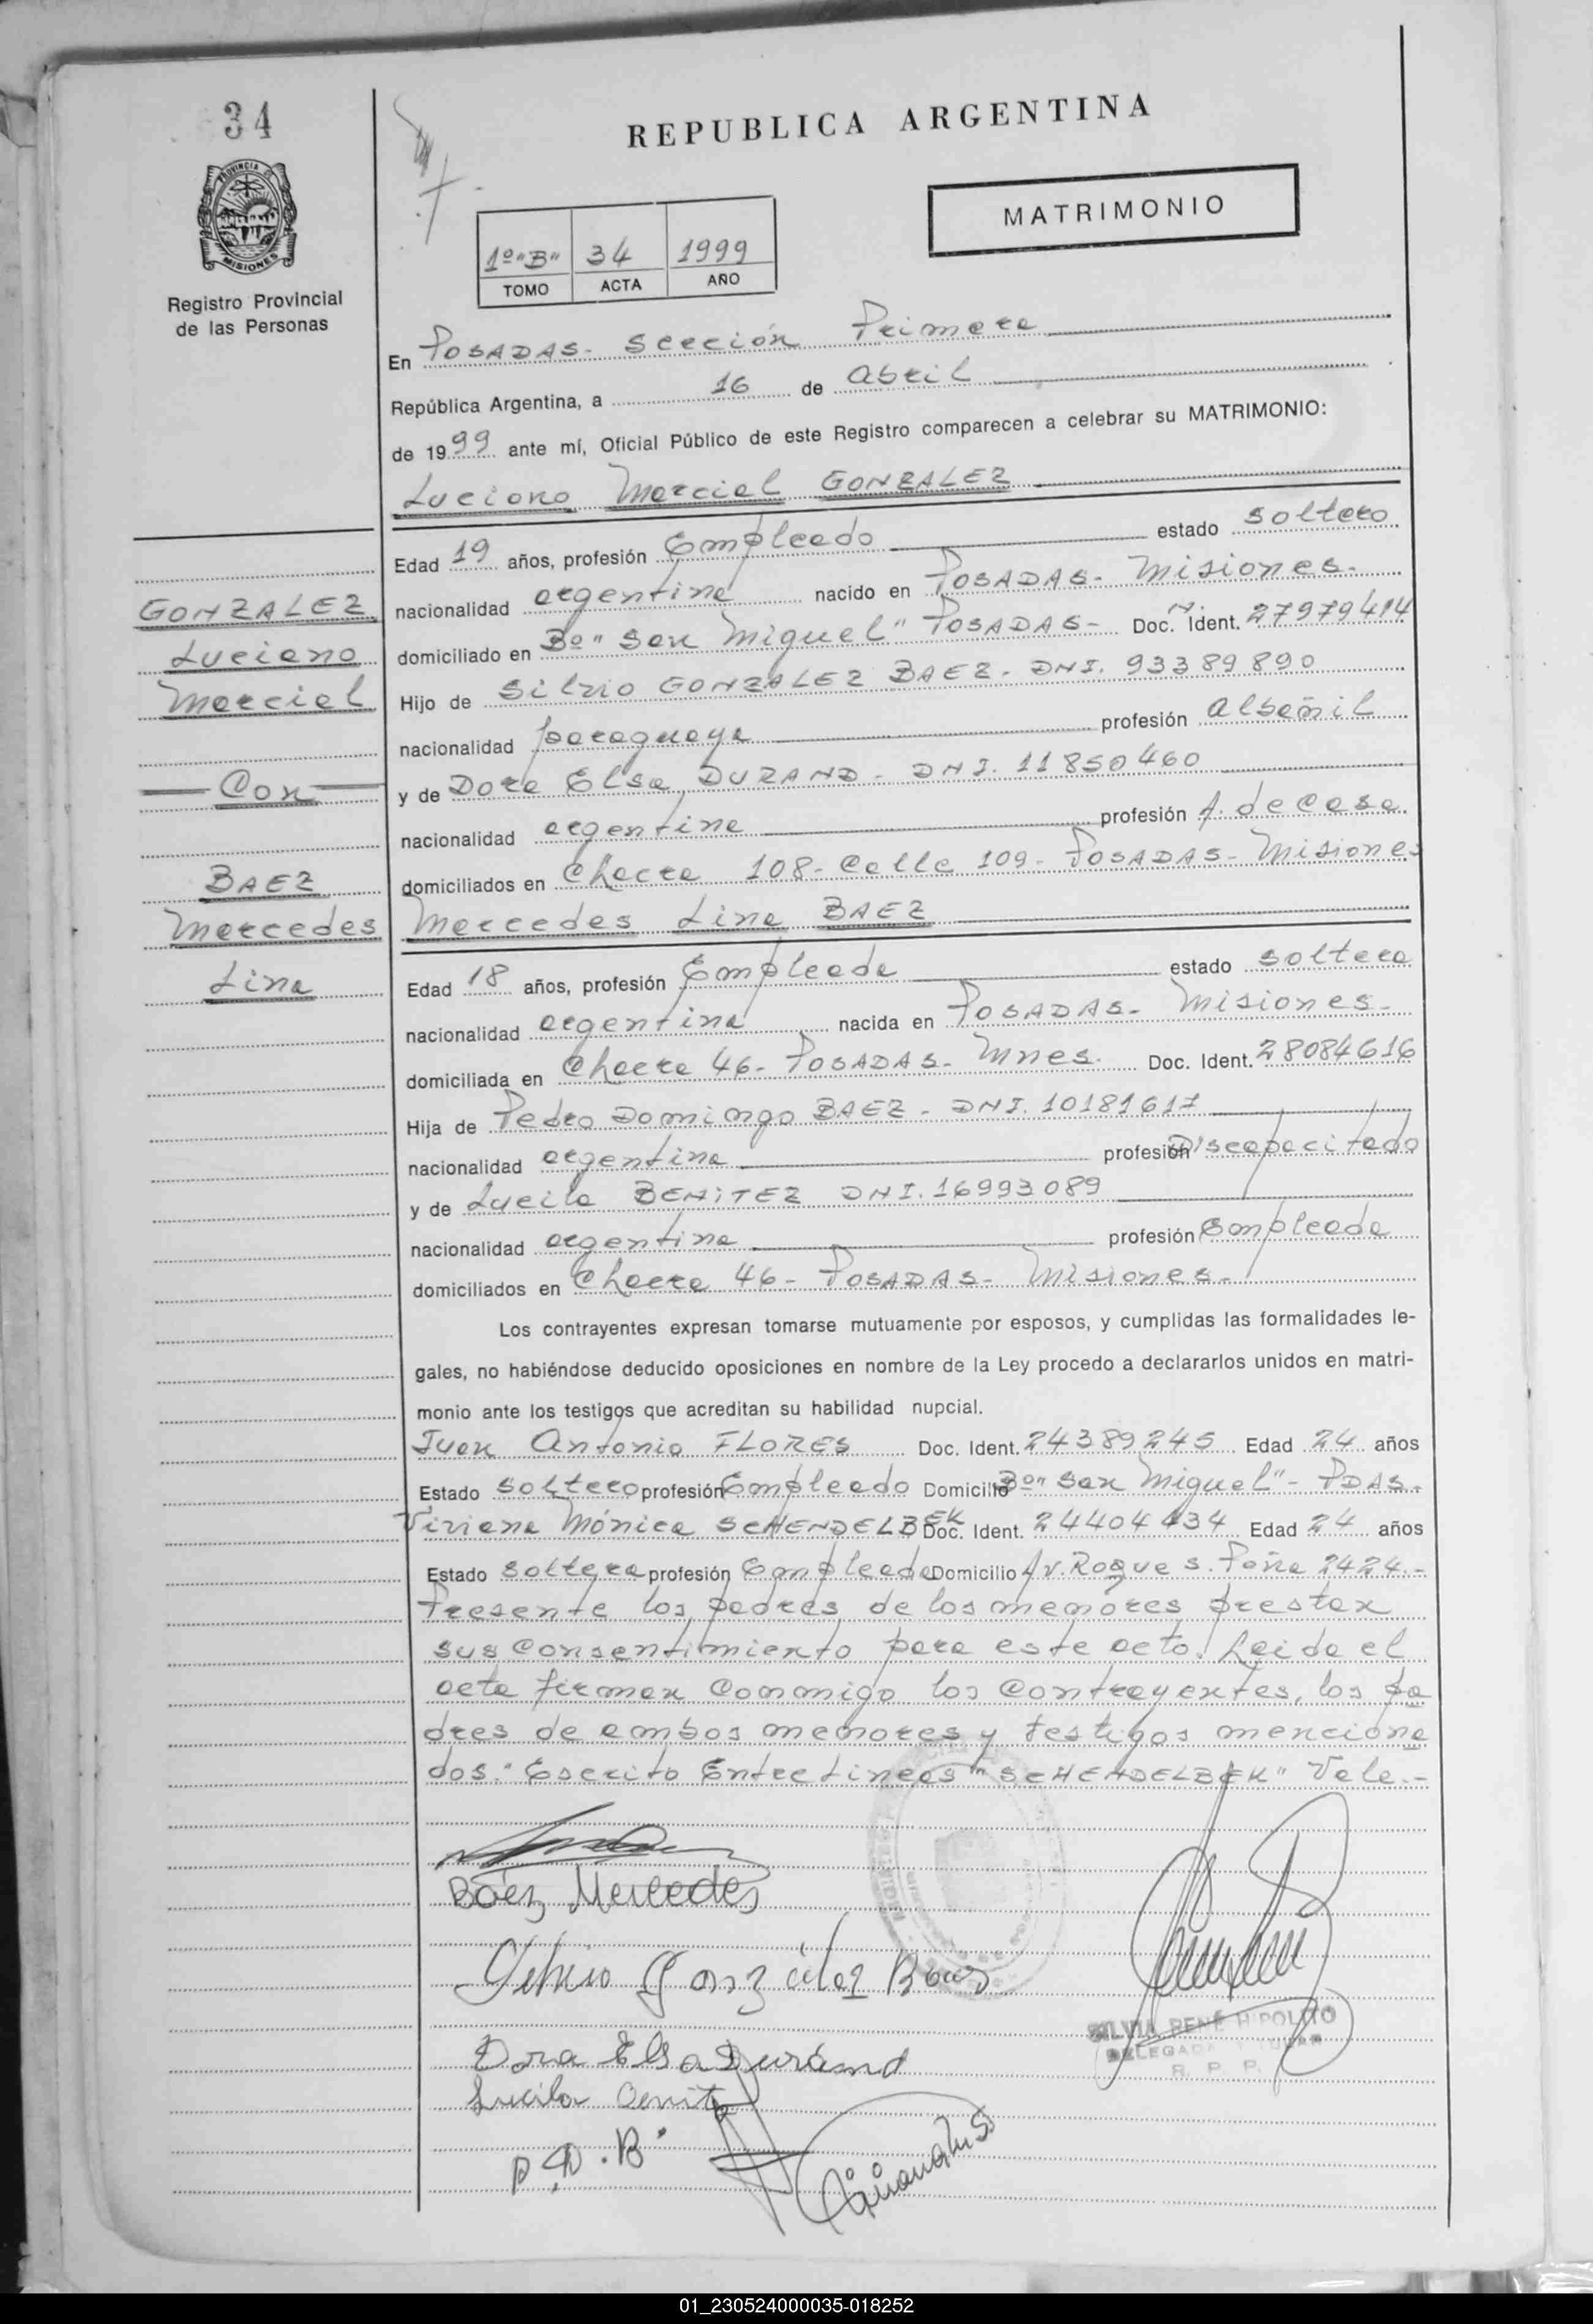 34
REPUBLICA ARGENTINA
PROVINCIA DE
MISIONES
Registro Provincial
de las Personas
MATRIMONIO
1º "B" 34 1999
TOMO ACTA AÑO
En POSADAS- Sección Primera
República Argentina, a 16 de Abril
de 1999 ante mí, Oficial Público de este Registro comparecen a celebrar su MATRIMONIO:
Luciano Marcial GONZALEZ
Edad 19 años, profesión Empleado estado soltero
nacionalidad argentina nacido en POSADAS- Misiones.
domiciliado en Bº "San Miguel" POSADAS- Doc. Ident. 27979414
Hijo de Silvio GONZALEZ BAEZ- DNI. 93389890
nacionalidad paraguaya profesión albañil
y de Dora Elsa DURAND- DNI. 11850460
nacionalidad argentina profesión A. de Casa
domiciliados en Chacra 108- Calle 109- POSADAS- Misiones
Mercedes Lina BAEZ
Edad 18 años, profesión Empleada estado soltera
nacionalidad argentina nacida en POSADAS- Misiones-
domiciliada en Chacra 46- POSADAS- Mnes. Doc. Ident. 28084616
Hija de Pedro Domingo BAEZ- DNI. 10181617
nacionalidad argentina profesión Discapacitado
y de Lucila BENITEZ DNI. 16993089
nacionalidad argentina profesión Empleada
domiciliados en Chacra 46- POSADAS- Misiones-
GONZALEZ
Luciano
Marcial
Con
BAEZ
Mercedes
Lina
Los contrayentes expresan tomarse mutuamente por esposos, y cumplidas las formalidades le-
gales, no habiéndose deducido oposiciones en nombre de la Ley procedo a declararlos unidos en matri-
monio ante los testigos que acreditan su habilidad nupcial.
Juan Antonio FLORES Doc. Ident. 24389245 Edad 24 años
Estado soltero profesión Empleado Domicilio Bº "San Miguel"- PDAS.
Viviana Mónica SCHENDELBEK Doc. Ident. 24404434 Edad 24 años
Estado soltera profesión Empleada Domicilio Av. Roque S. Peña 2424.-
Presente los padres de los menores prestan
sus Consentimiento para este acto. Leida el
acta firman Conmigo los Contrayentes, los pa
dres de ambos menores y testigos menciona
dos. "Escrito Entrelineas "SCHENDELBEK" Vale.-
Báez Mercedes
Silvio González Báez
Dora Elsa Durand
Lucila Benitez
P.D.B.
SILVIA RENÉ HIPOLITO
DELEGADA TITULAR
R. P. P.
01_230524000035-018252